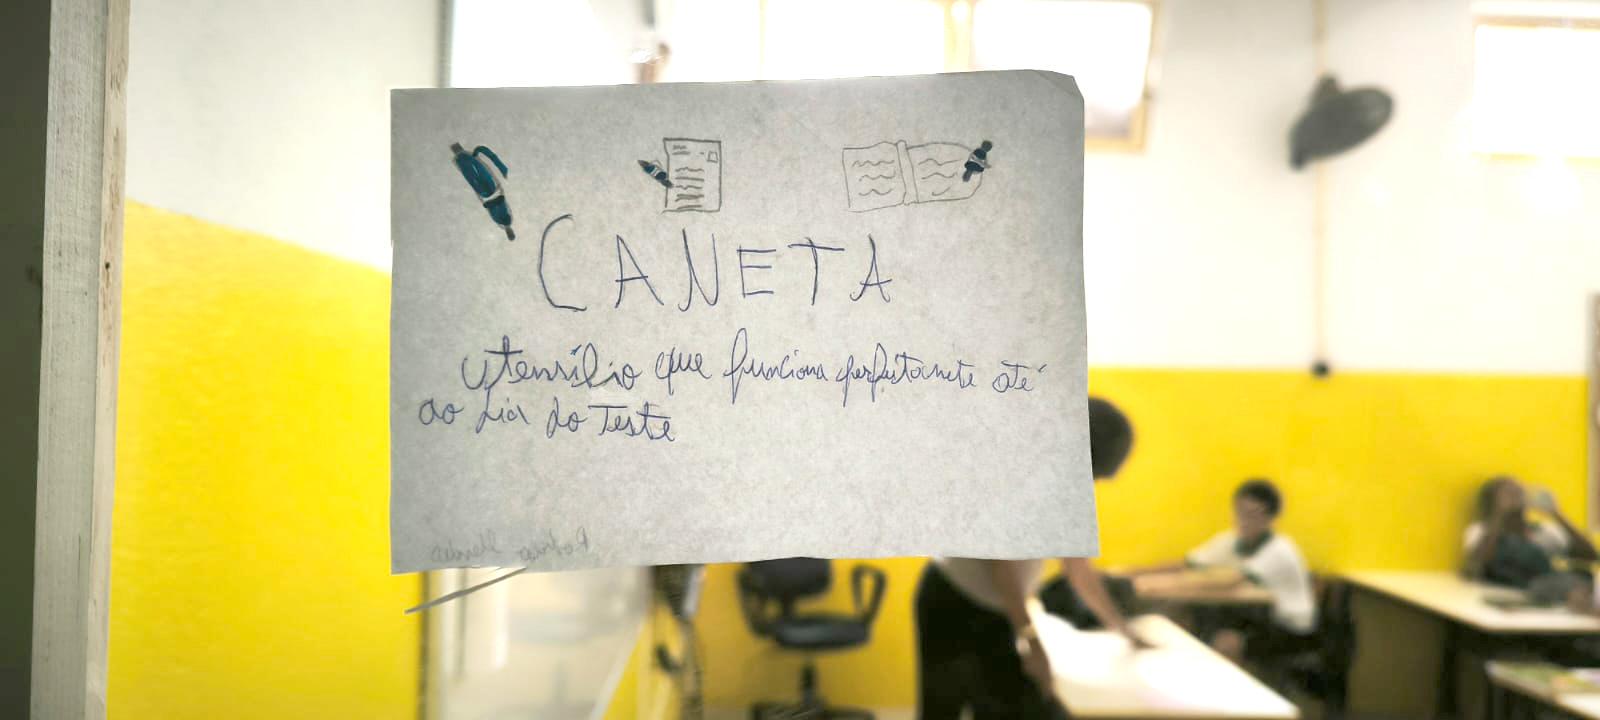 CANETA
utensílio que funciona perfeitamente até
ao dia do Teste